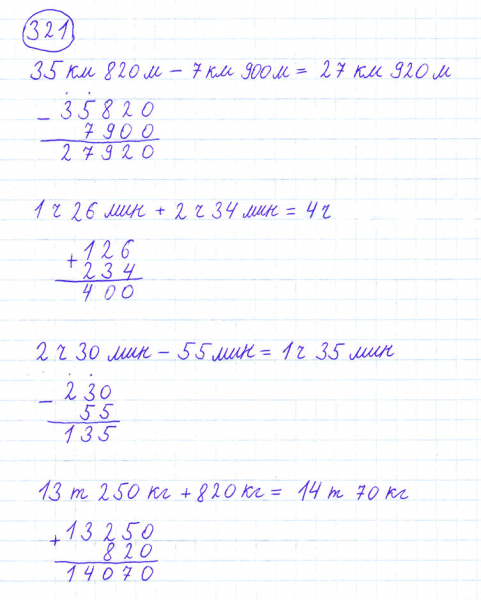 321
35 км 820 м - 7 км 900 м = 27 км 920 м
- 35820
7900
27920
1 ч 26 мин + 2 ч 34 мин = 4 ч
+ 126
234
400
2 ч 30 мин - 55 мин = 1 ч 35 мин
- 230
55
135
13 т 250 кг + 820 кг = 14 т 70 кг
+ 13250
820
14070